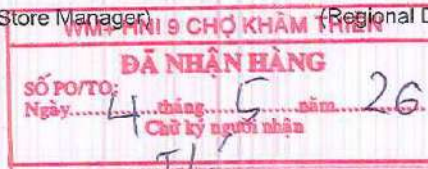 Store Manager) (Regional D
WM+ HNI 9 CHỢ KHÂM THIÊN
ĐÃ NHẬN HÀNG
SỐ PO/TO:
Ngày.....4.....tháng.....5.....năm.....26
Chữ ký người nhận